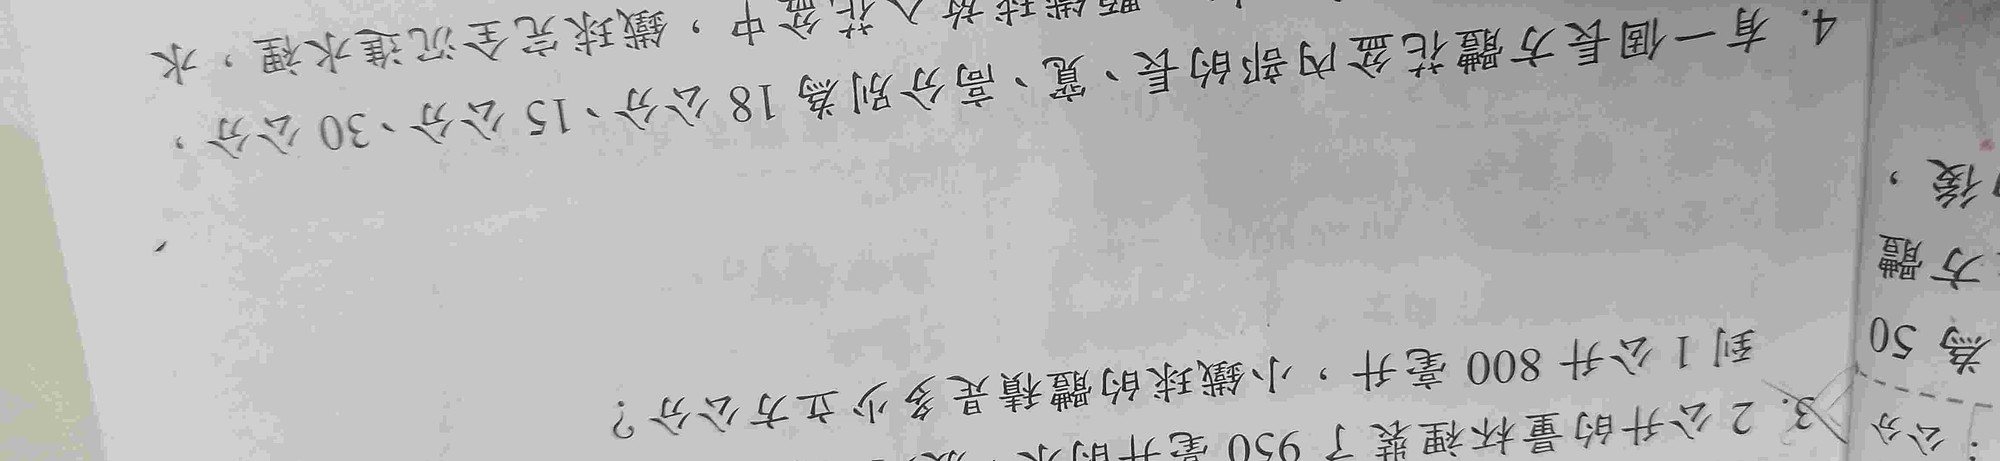 公分
為 50
方體
後，
3. 2 公升的量杯裡裝了 950 毫升的水，
到 1 公升 800 毫升，小鐵球的體積是多少立方公分？
4. 有一個長方體花盆內部的長、寬、高分別為 18 公分、15 公分、30 公分，
顆鐵球放入花盆中，鐵球完全沉進水裡，水